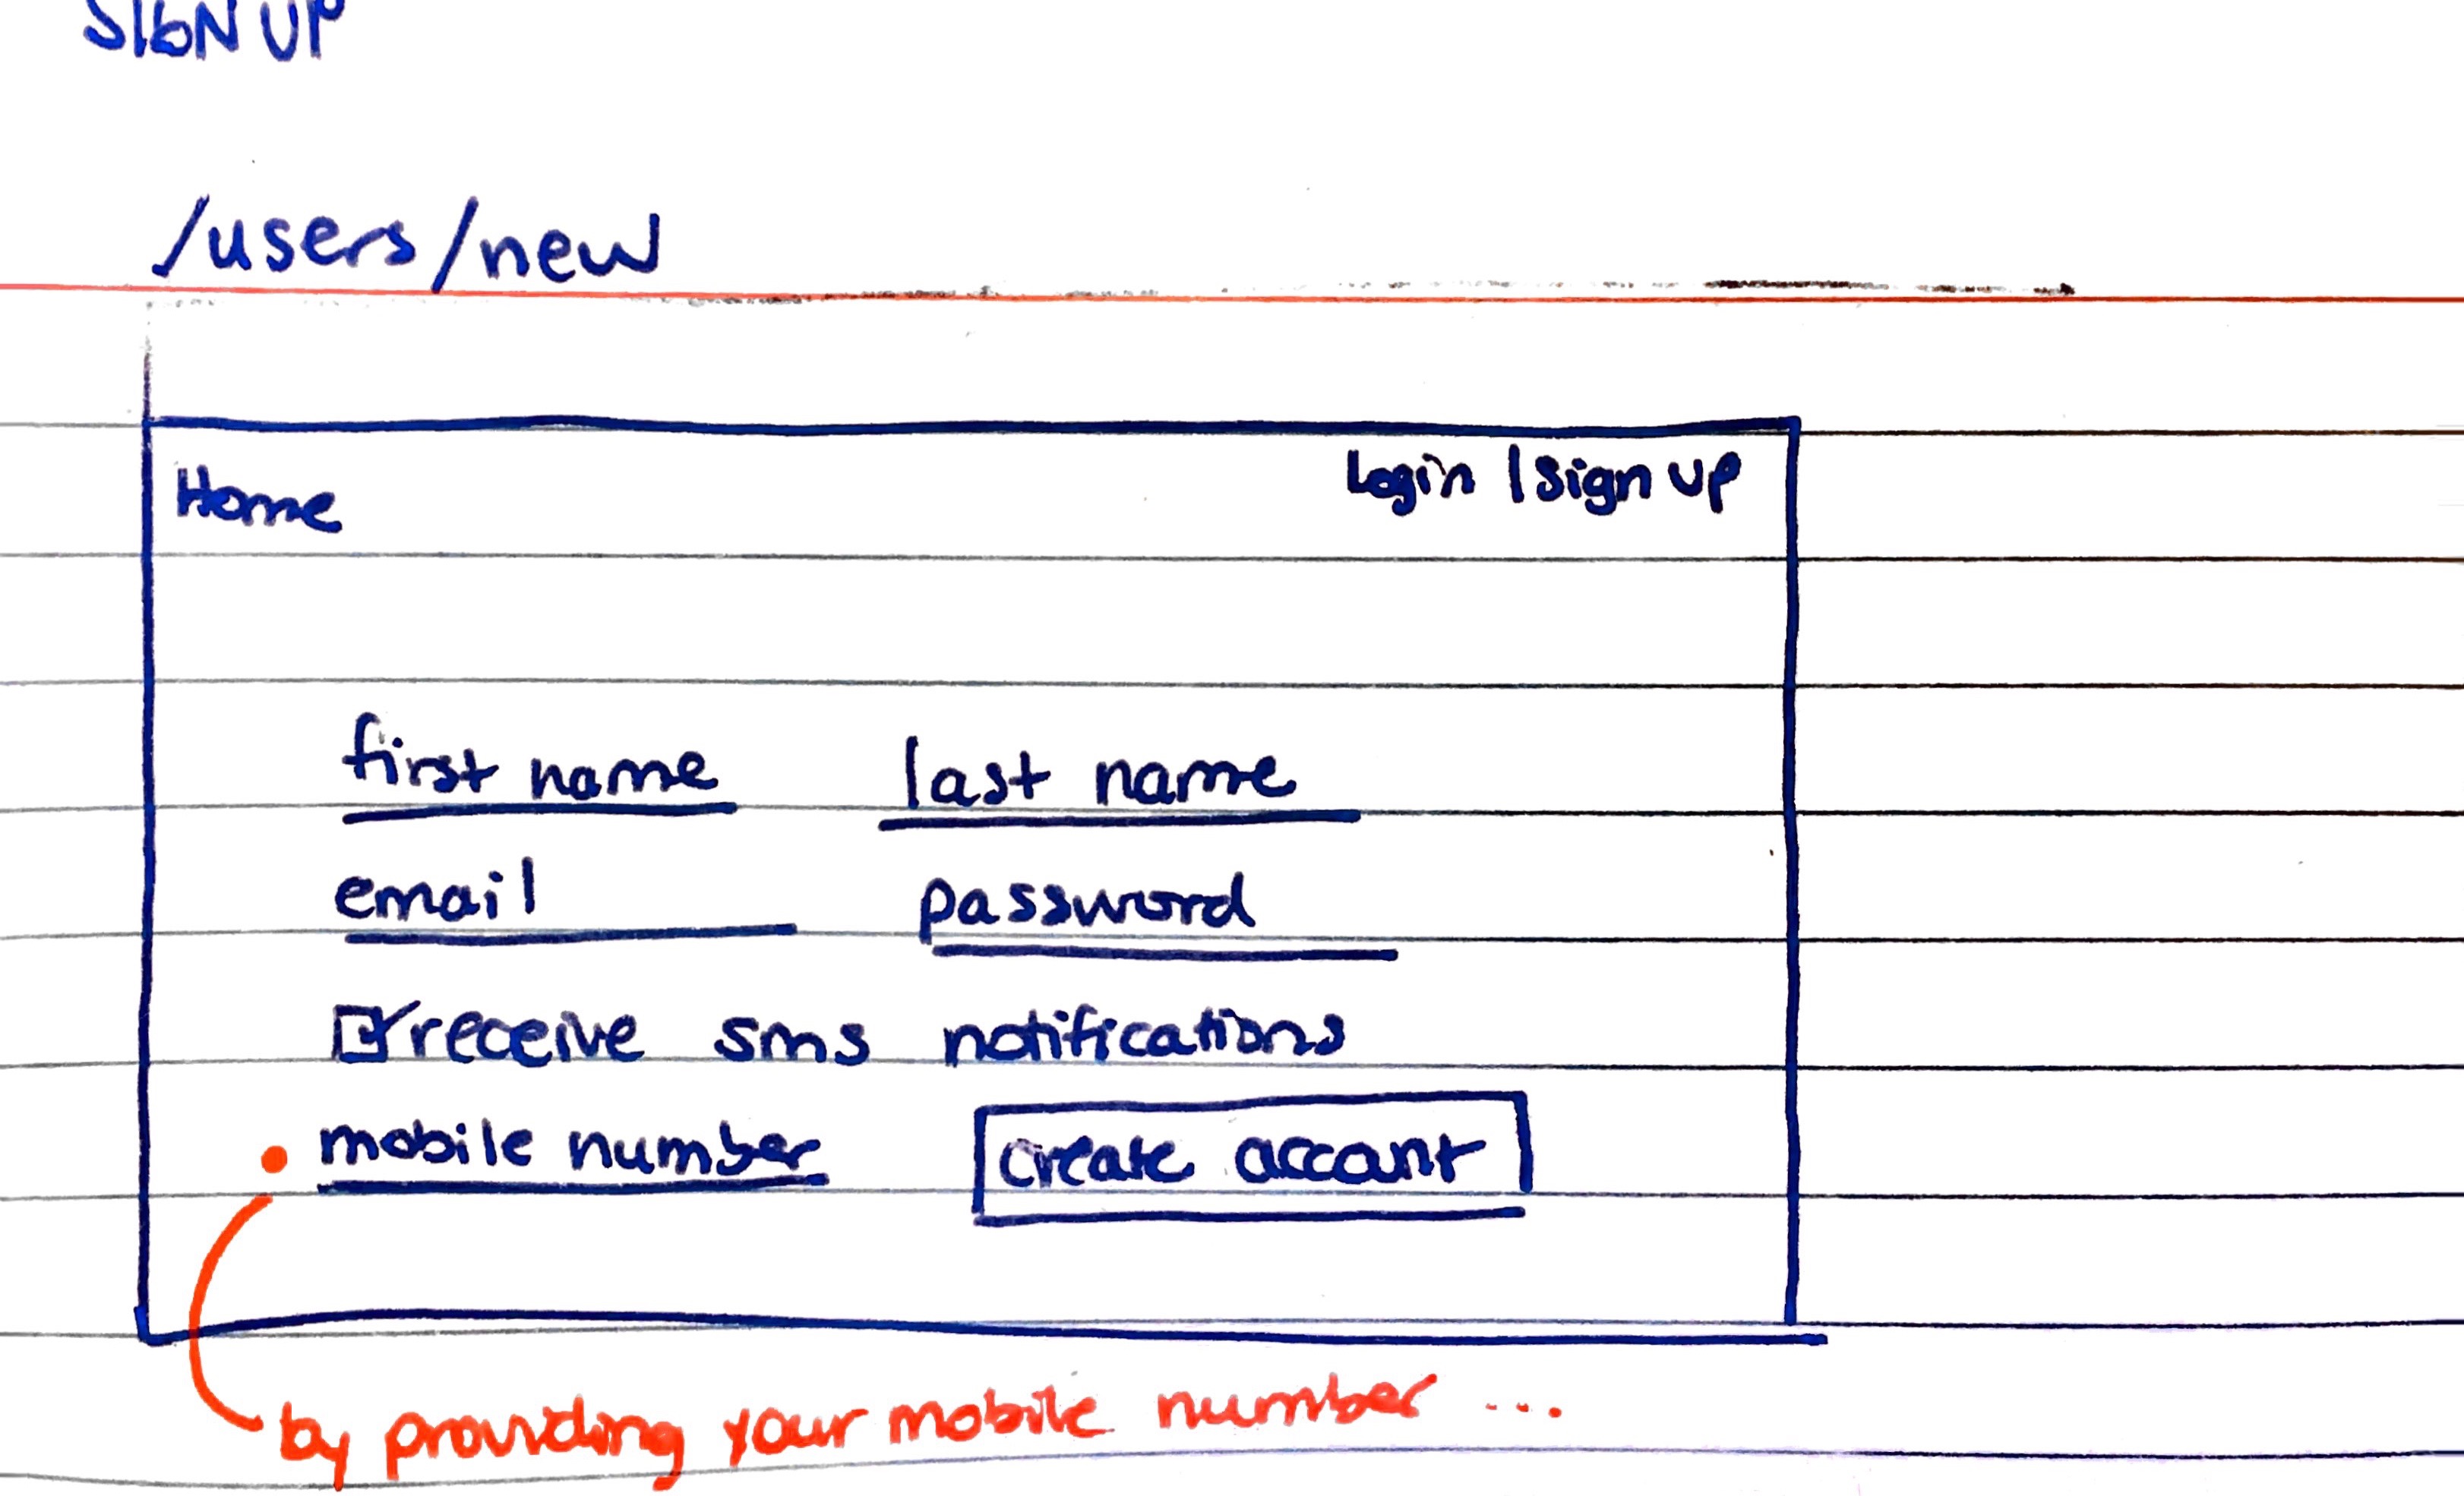 SIGN UP
/users/new
Home Login | Sign up
first name last name
email password
receive sms notifications
mobile number create account
by providing your mobile number ...